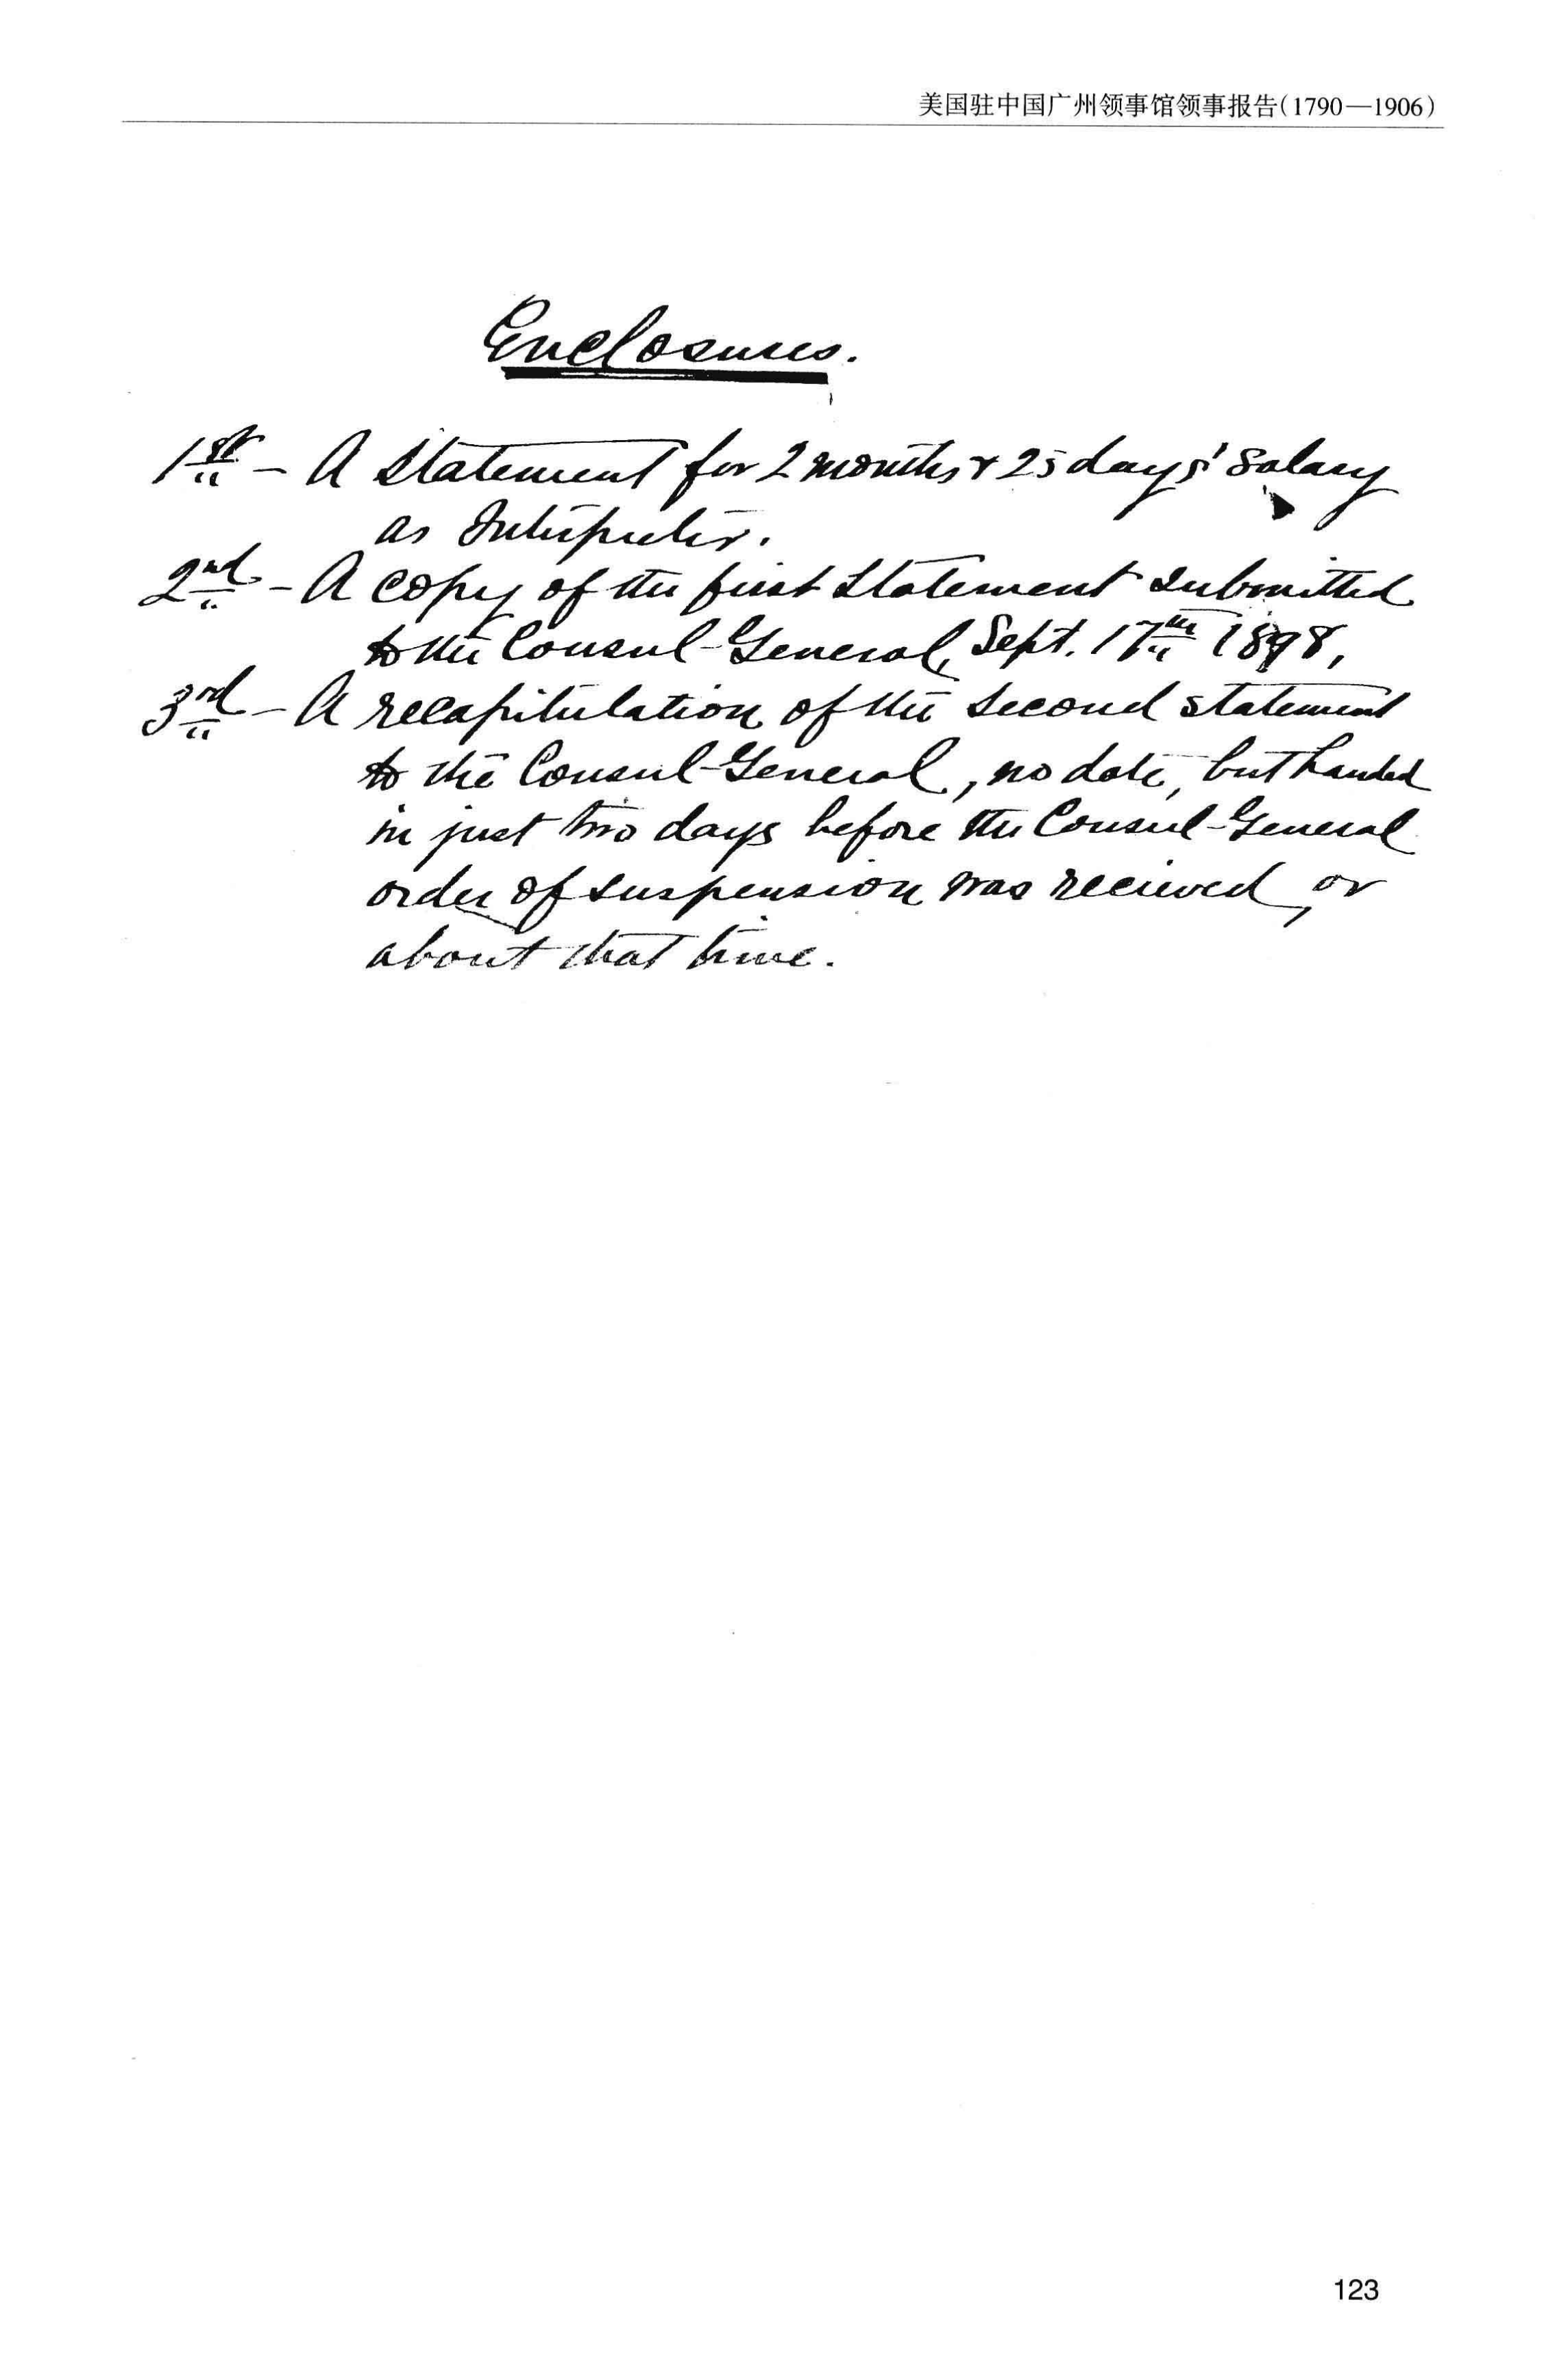 美国驻中国广州领事馆领事报告(1790—1906)
Enclosures.
1st - A Statement for 2 months & 25 days' Salary
as Interpreter.
2nd - A copy of the first Statement submitted
to the Consul-General, Sept. 17th 1898,
3rd - A recapitulation of the second statement
to the Consul-General, no date, but handed
in just two days before the Consul-General
order of suspension was recieved, or
about that time.
123